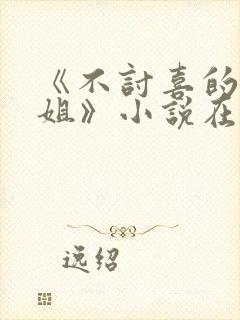 《不討喜的
姐》小説在
逸绍